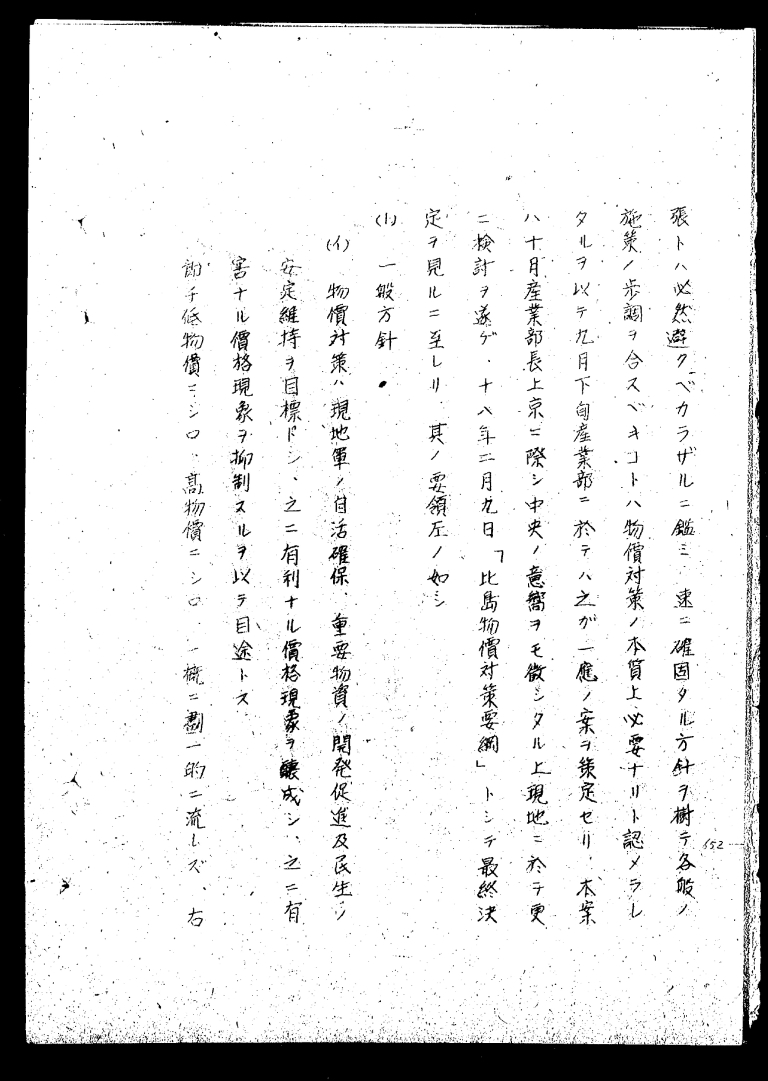 張トハ必然避クベカラザルニ鑑ミ 速ニ確固タル方針ヲ樹テ各般ノ
施策ノ歩調ヲ合スベキコトハ物價対策ノ本質上必要ナリト認メラレ
タルヲ以テ九月下旬産業部ニ於テハ之ガ一應ノ案ヲ策定セリ、本案
ハ十月産業部長上京ニ際シ中央ノ意嚮ヲモ徴シタル上現地ニ於テ更
ニ検討ヲ遂ゲ、十八年二月九日「比島物價対策要綱」トシテ最終決
定ヲ見ルニ至レリ 其ノ要領左ノ如シ
(1) 一般方針
(イ) 物價対策ハ現地軍ノ自活確保、重要物資ノ開発促進及民生ノ
安定維持ヲ目標トシ、之ニ有利ナル價格現象ヲ醸成シ、之ニ有
害ナル價格現象ヲ抑制スルヲ以テ目途トス
即チ低物價ニシロ、高物價ニシロ 一概ニ劃一的ニ流レズ、右
652